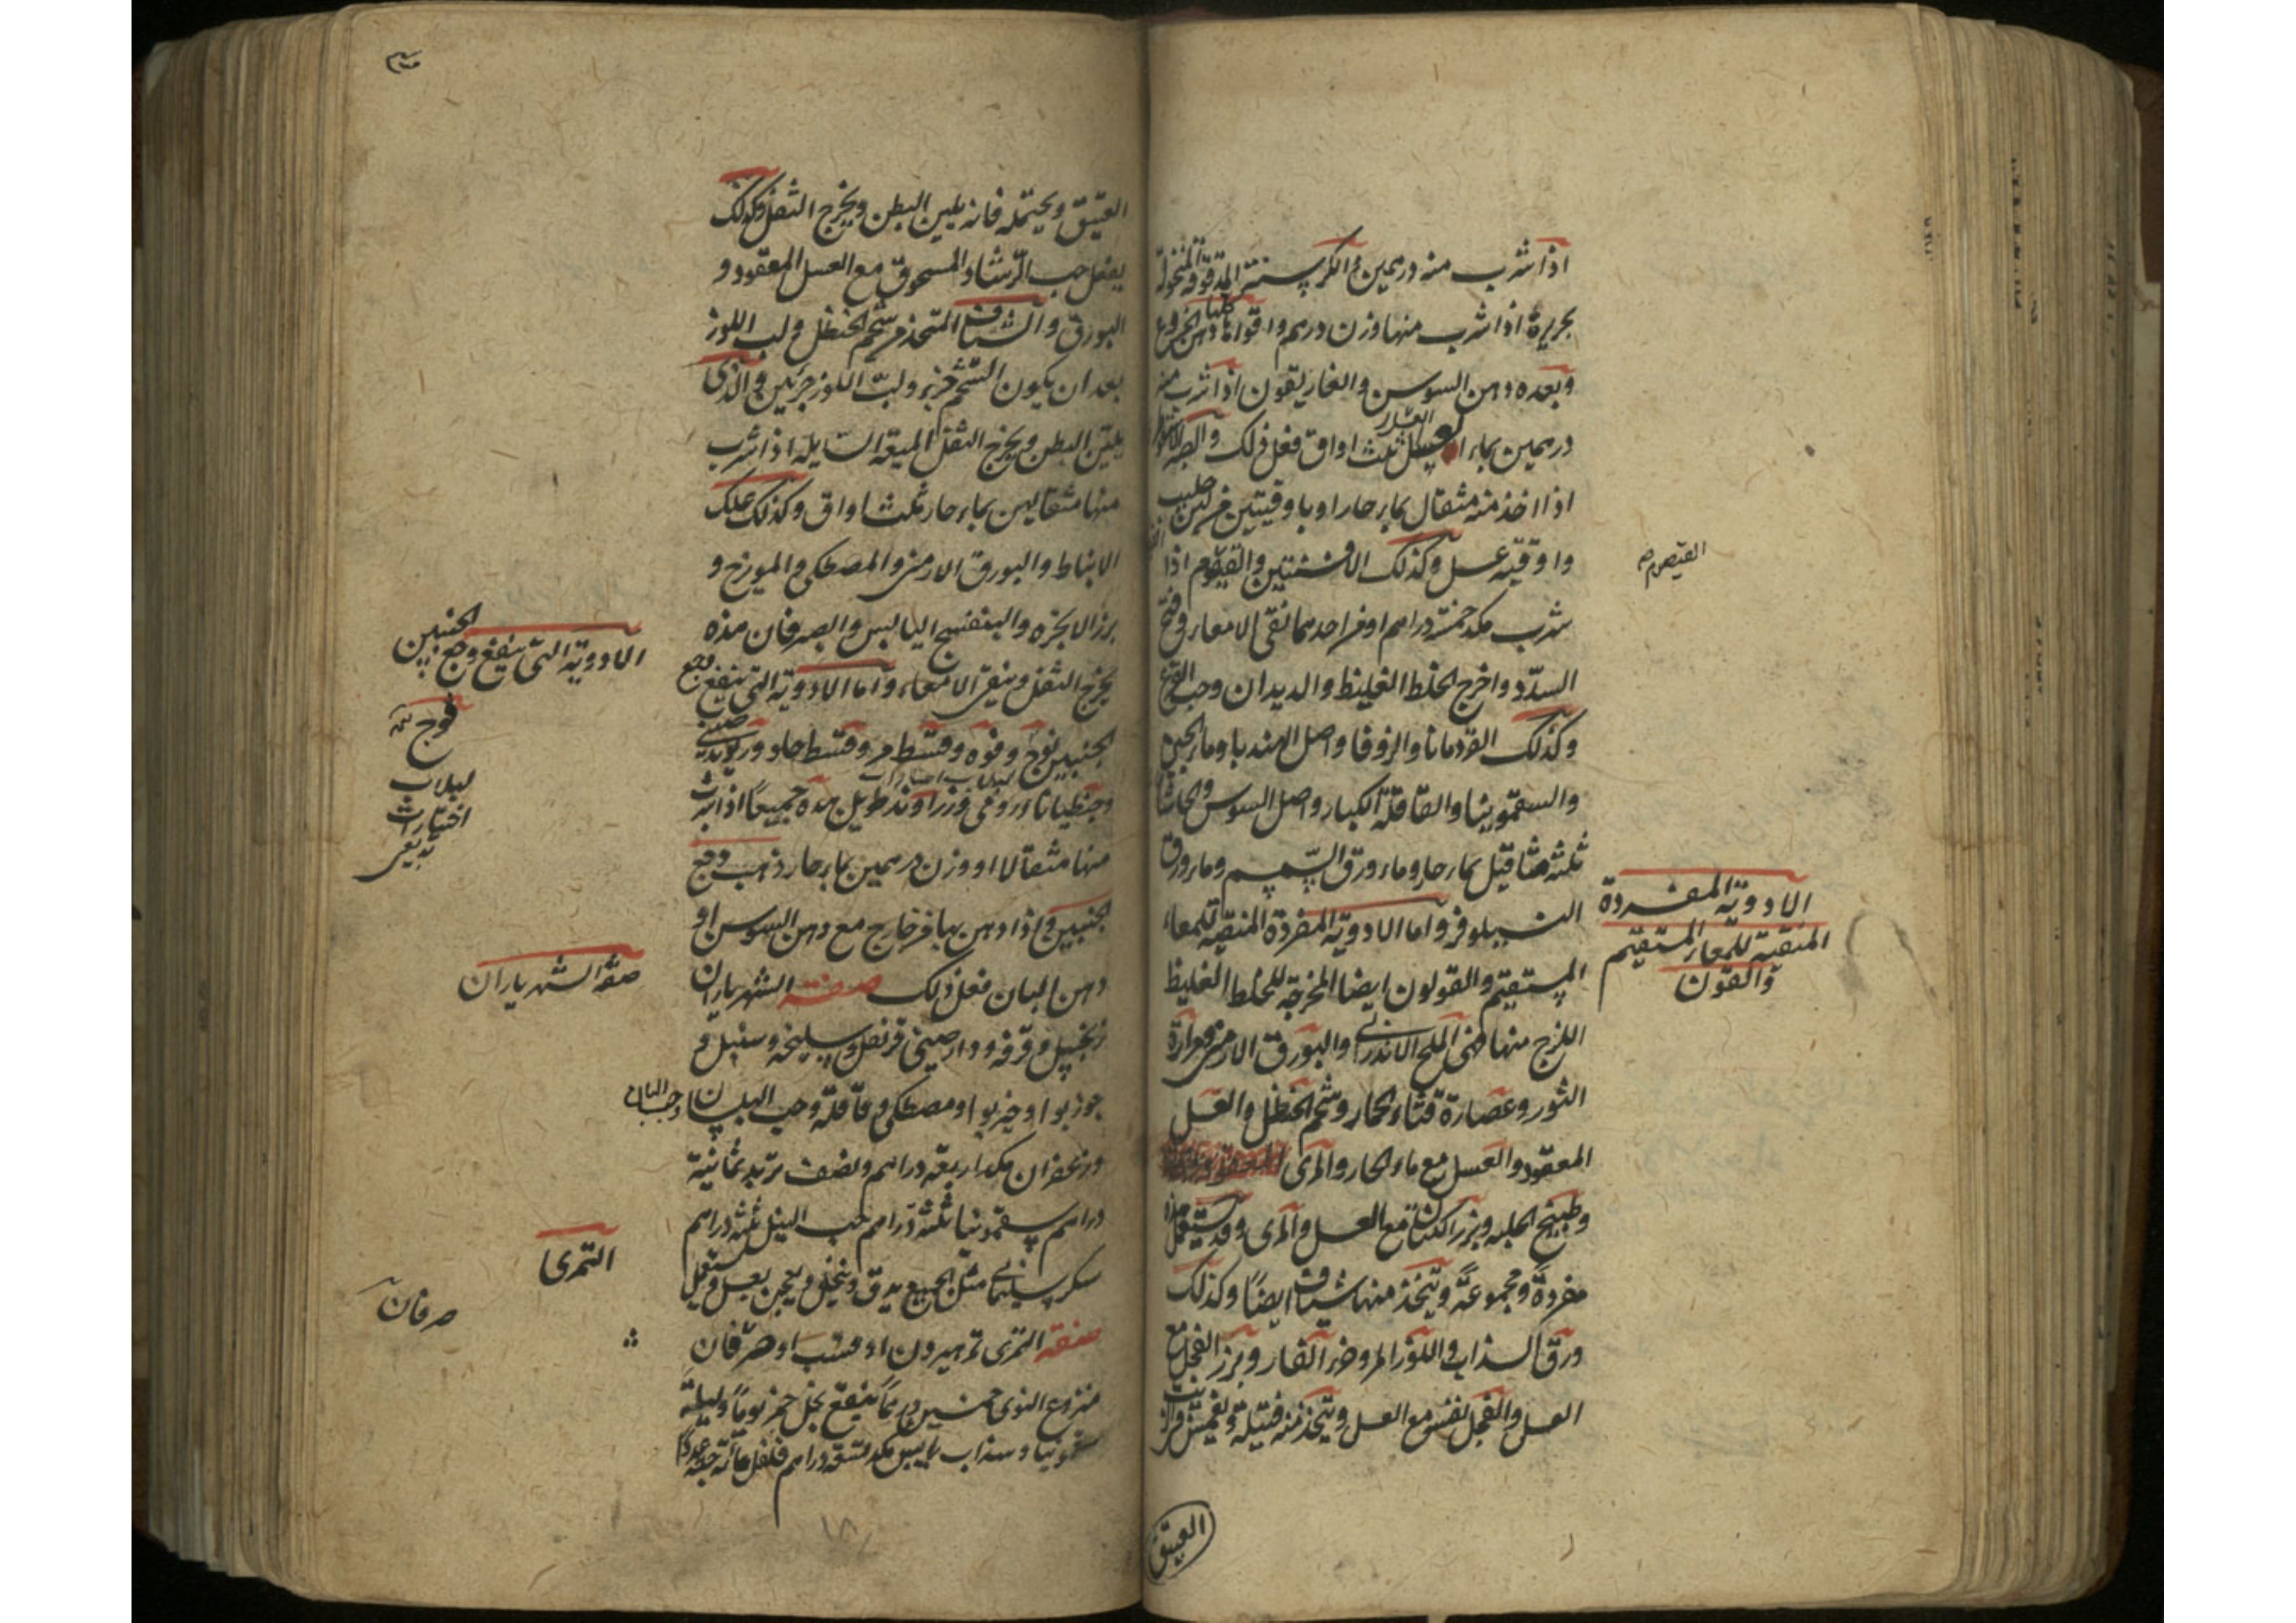 اذا شرب منه درهمين والكرسنة المدقوقة المنخولة
بحريرة اذا شرب منها وزن درهم واقواها دهن الخروع
وبعده دهن السوسن والغاريقون اذا شرب منه
درهمين بماء العسل ثلث اواق فعل ذلك والصبر
اذا اخذ منه مثقال بماء حار او باوقيتين من لبن حليب
واوقية عسل وكذلك الافسنتين والقيصوم اذا
القيصوم
شرب مكد خمسة دراهم او من احدهما نقى الامعاء وفتح
السدد واخرج الخلط الغليظ والديدان وحب القرع
وكذلك القردمانا والزوفا واصل الهندبا وماء الجبن
والسقمونيا والقاقلة الكبار واصل السوس والحاشا
ثلثة مثاقيل بماء حار وماء ورق السمسم وماء ورق
النيلوفر واما الادوية المفردة المنقية للمعاء
الادوية المفردة
المنقية للمعاء المستقيم
والقولون
المستقيم والقولون ايضا المخرجة للخلط الغليظ
اللزج منها فهى الملح الاندرانى والبورق الارمنى ومرارة
الثور وعصارة قثاء الحمار وشحم الحنظل والعسل
المعقود والعسل مع ماء الحار والمرى
وطبيخ الحلبه وبزر الكتان مع العسل والمرى وقد يستعمل هذه
مفردة ومجموعة ويتخذ منها شياف ايضا وكذلك
ورق السذاب واللوز المر وخرء الفار وبزر الفجل مع
العسل والفجل نفسه مع العسل ويتخذ منه فتيلة وتغمس فى الزيت
العتيق
العتيق ويحتمله فانه يلين البطن ويخرج الثفل وكذلك
يفعل حب الرشاد المسحوق مع العسل المعقود و
البورق والشياف المتخذ من شحم الحنظل ولب اللوز
بعد ان يكون الشحم جزء ولب اللوز جزئين والذى
يلين البطن ويخرج الثفل الميعة السايلة اذا شرب
منها مثقالين بماء حار ثلث اواق وكذلك علك
الانباط والبورق الارمنى والمصطكى والميويزج و
بزر الانجره والبنفسج اليابس والصبر فان هذه
يخرج الثفل وينقى الامعاء واما الادوية التى ينفع وجع
الادوية التى ينفع وجع الجنبين
الجنبين فوج وفوه وقسط مر وقسط حلو وريوند صينى
فوج
وجنطيانا رومى وزراوند طويل هذه جميعا اذا شرب
لبلاب
اختيارات
بديعى
منها مثقالا او وزن درهمين بماء حار ذهب وجع
الجنبين واذا دهن بها من خارج مع دهن السوسن او
دهن البان فعل ذلك صفة الشهرياران
صفة الشهرياران
زنجبيل وقرفه ودارصينى قرنفل وسليخه وسنبل و
جوزبوا وخيربوا ومصطكى وقاقلة وحب البلسان
وزعفران مكد اربعة دراهم ونصف تربد ثمانية
دراهم سقمونيا ثلثة دراهم حب النيل ثلثة دراهم
سكر سليمانى مثل الجميع يدق وينخل ويعجن بعسل ويستعمل
التمرى
صرفان
صفة التمرى تمر هيرون او قسب او صرفان
منزوع النوى خمسين درهما ينقع بخل خمر يوما وليلة
سقمونيا وسذاب يابس مكد ستة دراهم فلفل مأته حبة عددا